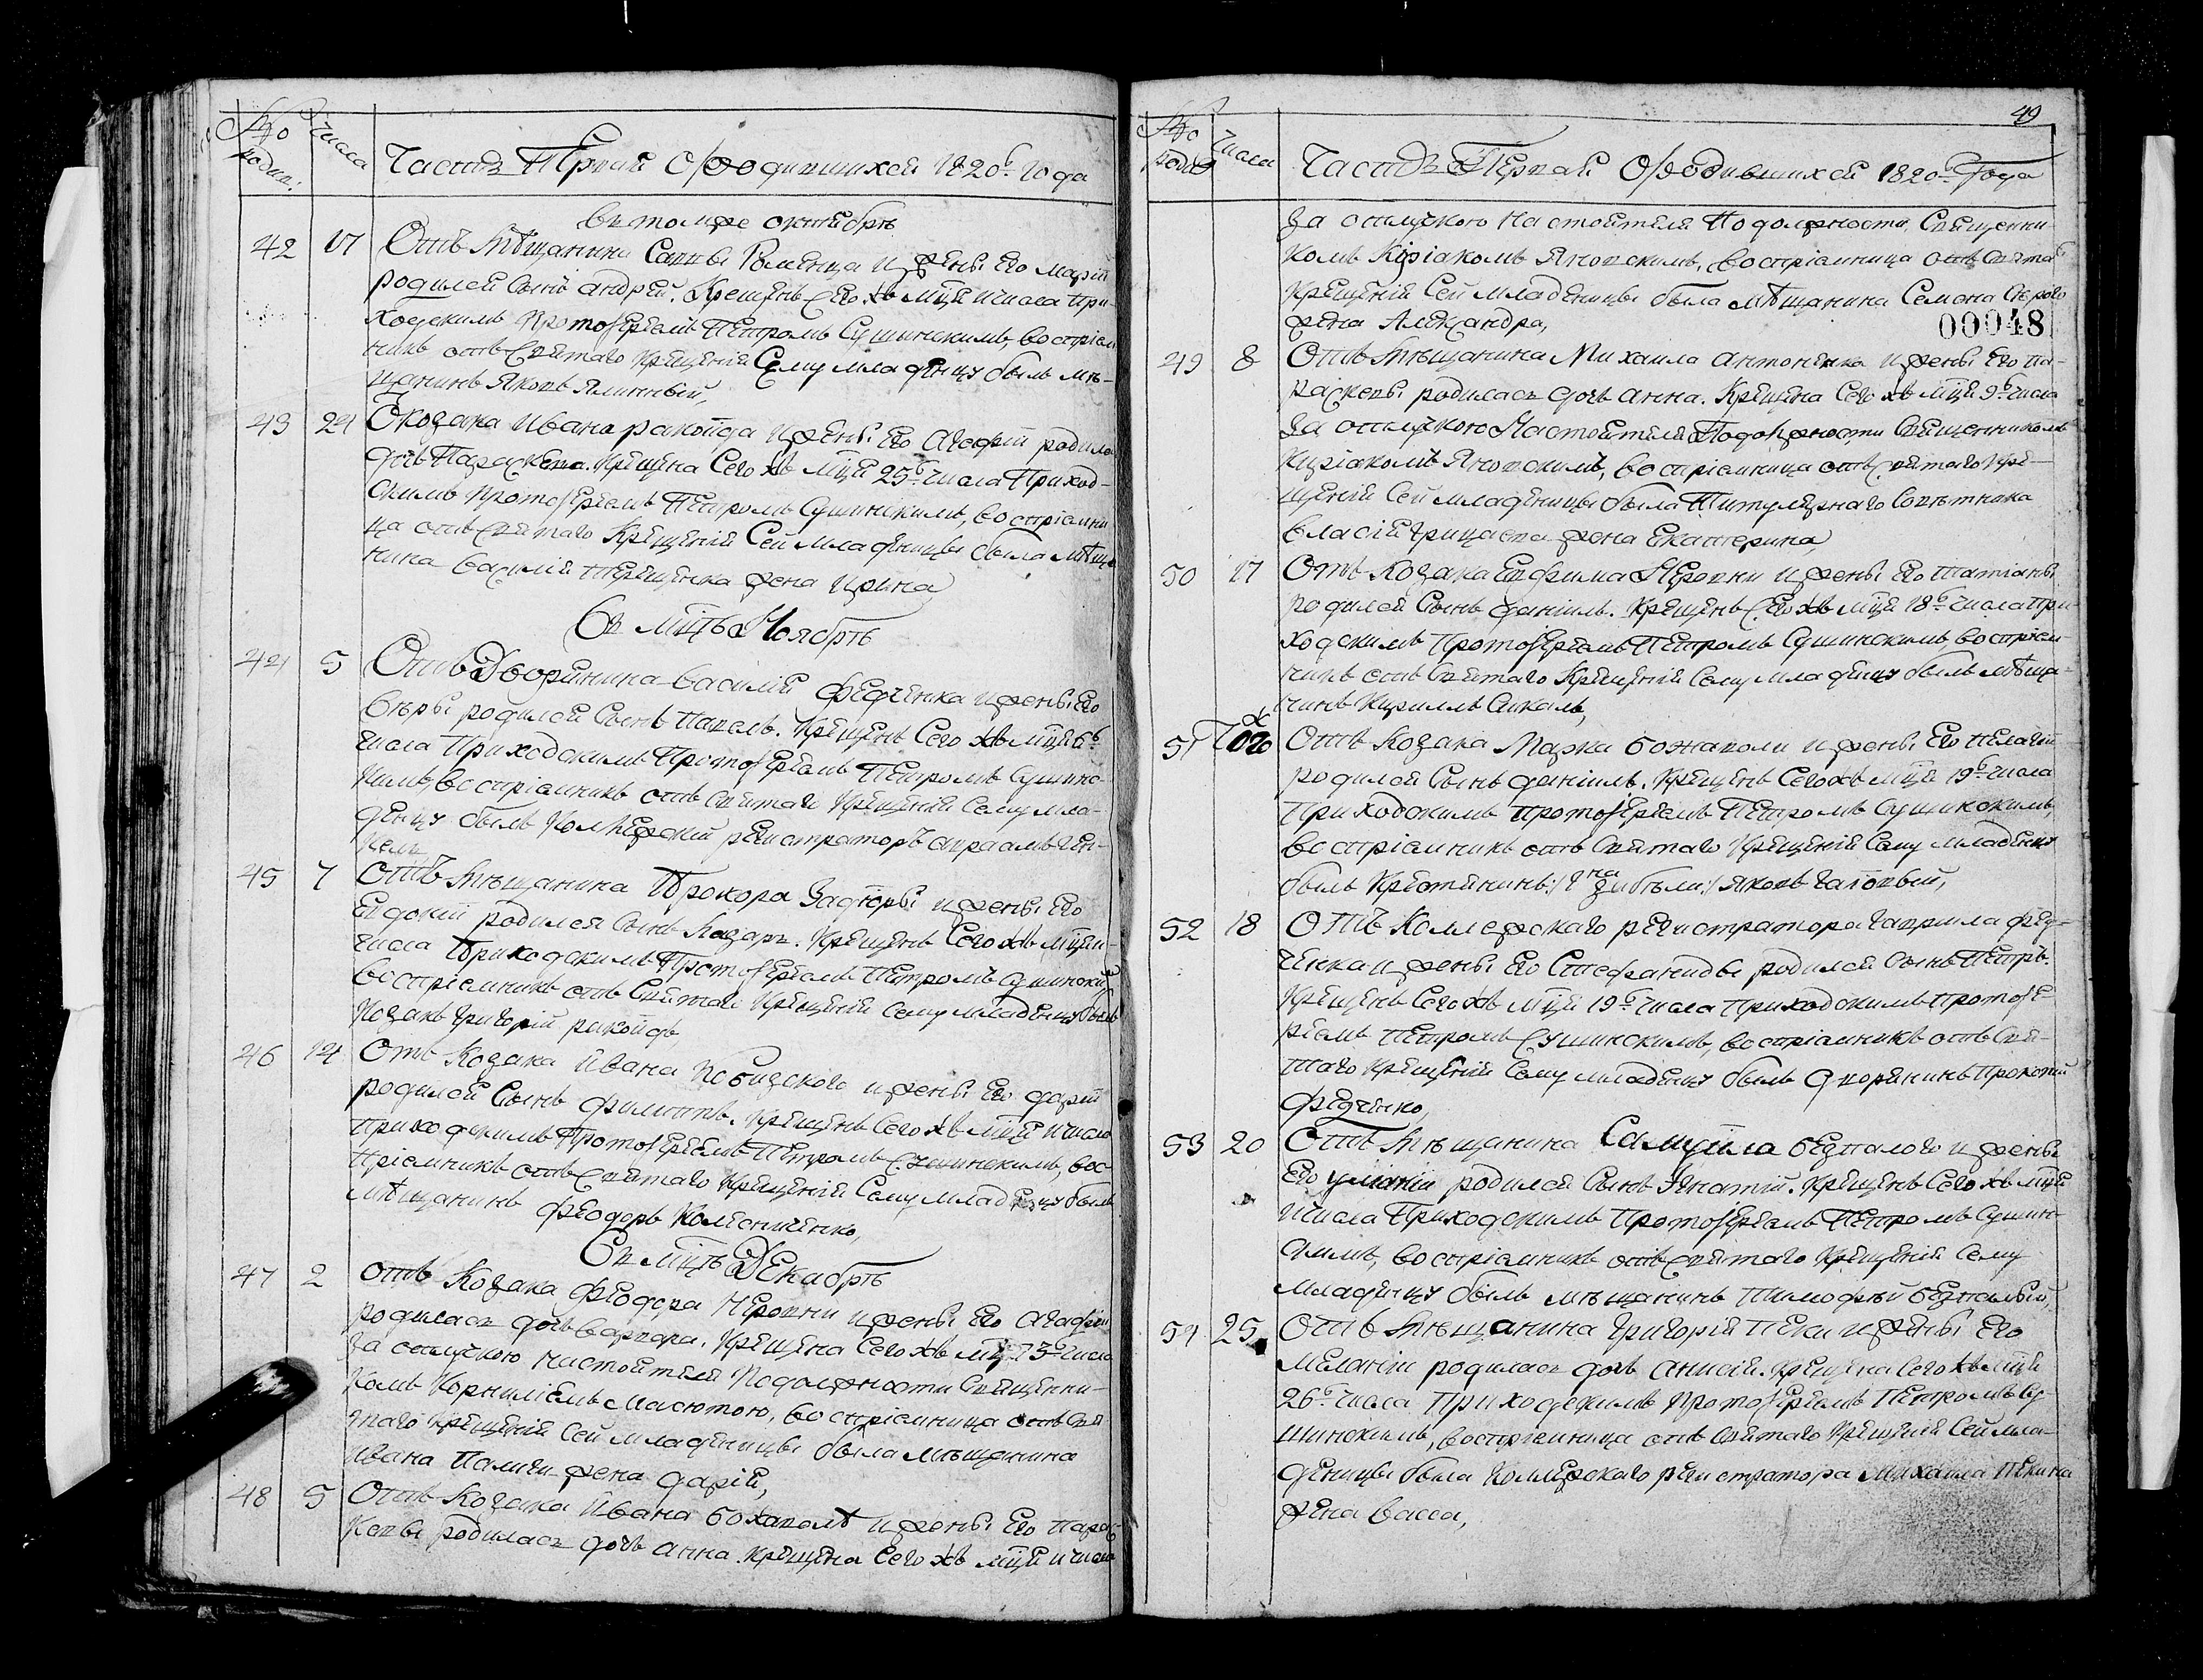 № родив: Числа Часть Первая О родившихся 1820го Года
въ томже октябрѣ
42 17 Отъ Мѣщанина Саввы Роменца и жены Его Маріи
родился Сынъ андрей. Крещенъ Сего жъ мц̃а и числа При-
ходскимъ Протоіереемъ Петромъ Сушинскимъ, воспріем-
никъ отъ Святаго Крещенія Сему младенцу былъ мѣ-
щанинъ Яковъ Ялинный,
43 24 Ѿ козака Ивана ракойда и жены Его Агафіи родила
дочь Параскева. Крещена Сего жъ мц̃а 25го числа Приход-
скимъ Протоіереемъ Петромъ Сушинскимъ, воспріемни
ца отъ Святаго Крещенія Сей младеницы была мѣща
нина василія Терещенка жена Ирина
Въ мц̃ѣ Ноябрѣ
44 5 Отъ Дворянина василія Федченка и жены Его
Вѣры родился Сынъ Павелъ. Крещенъ Сего жъ мц̃а 6го
числа Приходскимъ Протоіереемъ Петромъ Сушинс-
кимъ, воспріемникъ отъ Святаго Крещенія Сему мла-
денцу былъ Коллежскій регистраторъ авраамъ Ген-
кель
45 7 Отъ Мѣщанина Прохора Задюры и жены Его
Евдокіи родился Сынъ Лазарь. Крещенъ Сего жъ мц̃а и
числа Приходскимъ Протоіереемъ Петромъ Сушинским
воспріемникъ отъ Святаго Крещенія Сему младенцу былъ
Козакъ Григорій ракойдъ,
46 14 Отъ Козака Ивана Кобизскаго и жены Его даріи
родился Сынъ филиппъ. Крещенъ Сего жъ мц̃а и числа
приходскимъ Протоіереемъ Петромъ Сушинскимъ, вос-
пріемникъ отъ Святаго Крещенія Сему младенцу былъ
Мѣщанинъ феодоръ Колесниченко,
Въ мц̃ѣ Декабрѣ
47 2 отъ Козака феодора Неровни и жены Его Агафіи
родилась дочь варвара. Крещена Сего жъ мц̃а 3го числа
За отлучкою настоятеля По должности Священни-
комъ Корниліемъ Масютою, воспріемница отъ Свя
таго Крещенія Сей младеницы была мѣщанина
Ивана Палиги жена дарія,
48 5 Отъ Козака Ивана божаволѣ и жены Его парас-
кевы родилась дочь анна. Крещена Сего жъ мц̃а и числа
49
№ родив Числа Часть Первая О родившихся 1820го Года
За отлучкою Настоятеля По должности Священни-
комъ Киріакомъ Яновскимъ, воспріемница отъ Святаго
Крещенія Сей младеницы была мѣщанина Семена
жена Александра,
00048
49 8 Отъ Мѣщанина Михаила антоненка и жены Его па-
раскевы родилась дочь анна. Крещена Сего жъ мц̃а 9го числа
За отлучкою Настоятеля По должности Священникомъ
Киріакомъ Яновскимъ, воспріемница отъ Святаго Кре-
щенія Сей младеницы была Титулярнаго Совѣтника
власія Грицая жена Екатерина,
50 17 Отъ Козака Евфима Неровни и жены Его татіаны
родился Сынъ даніилъ. Крещенъ Сего жъ мц̃а 18го числа при-
ходскимъ Протоіереемъ Петромъ Сушинскимъ, воспріем
никъ отъ Святаго Крещенія Сему младенцу былъ мѣща-
нинъ Кириллъ Сикалъ,
51 Того Отъ Козака Марка божаволи и жены Его пелагіи
родился Сынъ даніилъ. Крещенъ Сего жъ мц̃а 19го числа
Приходскимъ протоіереемъ Петромъ Сушинскимъ,
воспріемникъ отъ Святаго Крещенія Сему младенцу
былъ Крестянинъ :/ Гна Забѣли :/ Яковъ Гаповый,
52 18 Отъ Коллежскаго регистратора гаврила фед-
ченка и жены Его Стефаниды родился Сынъ Петръ.
Крещенъ Сего жъ мц̃а 19го числа Приходскимъ протоіе-
реемъ Петромъ Сушинскимъ, воспріемникъ отъ Свя-
таго Крещенія Сему младенцу былъ дворянинъ Прокопій
Федченко,
53 20 Отъ Мѣщанина Самуила безпалого и жены
Его Уліаніи родился Сынъ Игнатій. Крещенъ Сего жъ мц̃а
и числа Приходскимъ Протоіереемъ Петромъ Сушин-
скимъ, воспріемникъ отъ Святаго Крещенія Сему
младенцу былъ мѣщанинъ Тимофей безпалый,
54 25 Отъ Мѣщанина Григорія Пеки и жены Его
Меланіи родилась дочь анисія. Крещена Сего жъ мц̃а
26го числа Приходскимъ Протоіереемъ Петромъ Су
шинскимъ, воспріемница отъ Святаго Крещенія Сей мла-
деницы была Коллежскаго регистратора Михаила Пѣкина
жена васса,